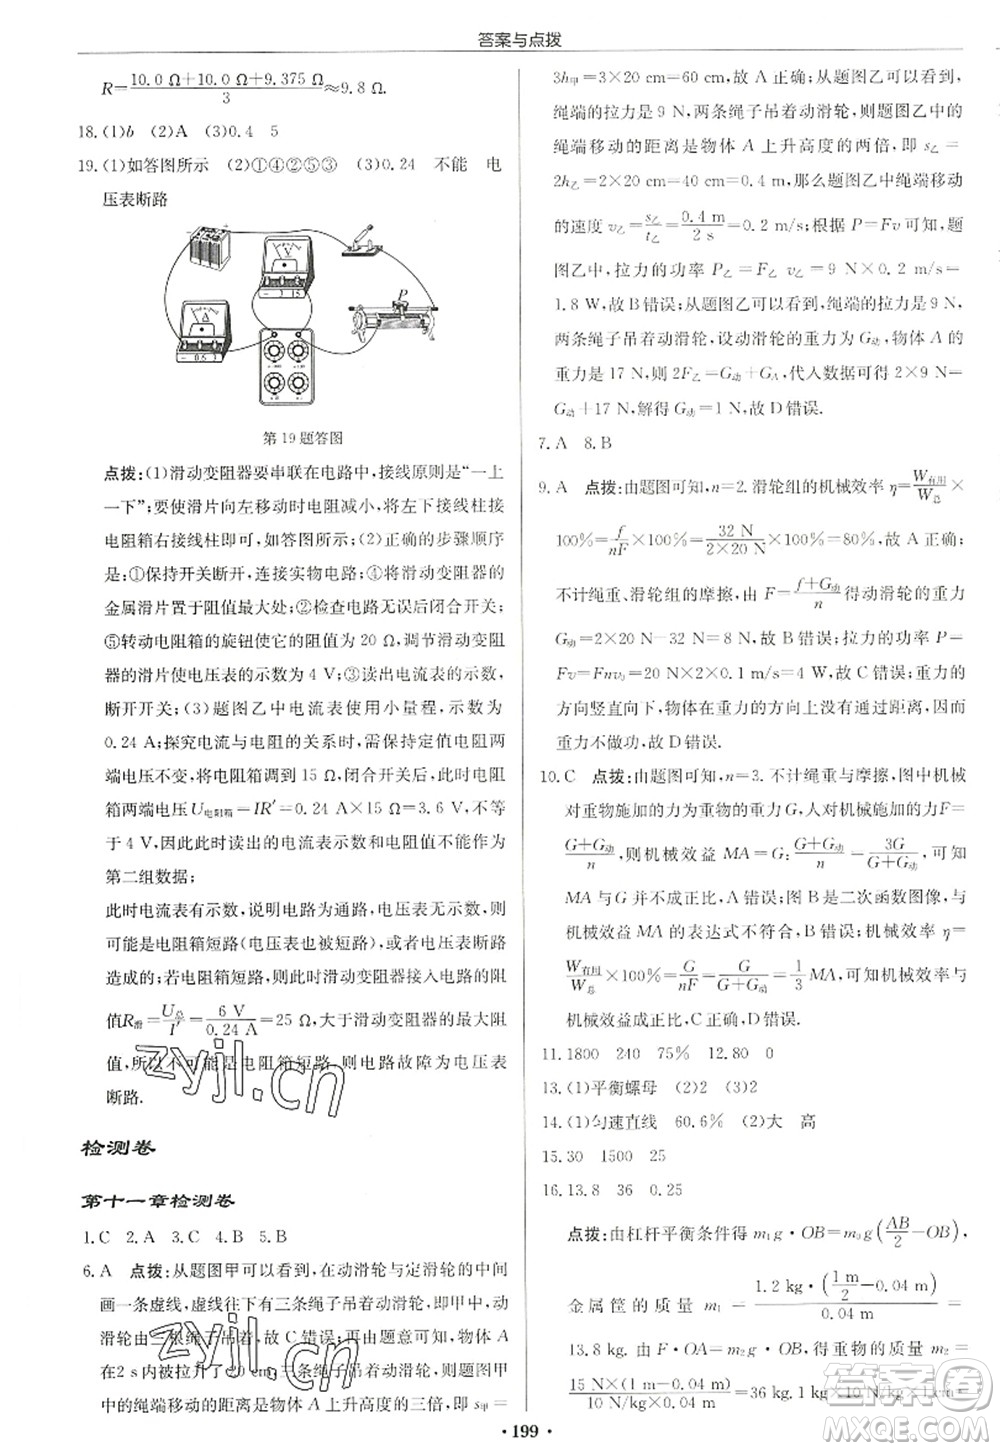 答案与点拨
R=(10.0 Ω+10.0 Ω+9.375 Ω)/3≈9.8 Ω.
18.(1)b (2)A (3)0.4 5
19.(1)如答图所示 (2)①④②⑤③ (3)0.24 不能 电
压表断路
第 19 题答图
点拨:(1)滑动变阻器要串联在电路中,接线原则是“一上
一下”;要使滑片向左移动时电阻减小,将左下接线柱接
电阻箱右接线柱即可,如答图所示;(2)正确的步骤顺序
是:①保持开关断开,连接实物电路;④将滑动变阻器的
金属滑片置于阻值最大处;②检查电路无误后闭合开关;
⑤转动电阻箱的旋钮使它的阻值为 20 Ω,调节滑动变阻
器的滑片使电压表的示数为 4 V;③读出电流表的示数,
断开开关;(3)题图乙中电流表使用小量程,示数为
0.24 A;探究电流与电阻的关系时,要控制定值电阻两
端电压不变,将电阻箱阻值调到 15 Ω,闭合开关后,电阻
箱两端电压U电阻箱=IR′=0.24 A×15 Ω=3.6 V,不等
于 4 V,因此此时读出的电流表示数和电阻值不能作为
第二组数据;
此时电流表有示数,说明电路为通路,电压表无示数,则
可能是电阻箱短路(电压表也被短路),或者电压表断路
造成的;若电阻箱短路,则此时滑动变阻器接入电路的阻
值R滑=U总/I′=6 V/0.24 A=25 Ω,大于滑动变阻器的最大阻
值,所以不可能是电阻箱短路,则电路故障为电压表
断路.
检测卷
第十一章检测卷
1.C 2.A 3.C 4.B 5.B
6.A 点拨:从题图甲可以看到,在动滑轮与定滑轮的中间
画一条虚线,虚线往下有三条绳子吊着动滑轮,即甲中,动
滑轮由三根绳子吊着,故 C 错误;由题意可知,物体 A
在 2 s 内被拉升了 20 cm,三条绳子吊着动滑轮,则题图甲
中的绳端移动的距离是物体 A 上升高度的三倍,即 s甲=
3h甲=3×20 cm=60 cm,故 A 正确;从题图乙可以看到,
绳端的拉力为 9 N,两条绳子吊着动滑轮,则题图乙中的
绳端移动的距离是物体 A 上升高度的两倍,即 s乙=
2h乙=2×20 cm=40 cm=0.4 m,那么题图乙中绳端移动
的速度 v乙=s乙/t乙=0.4 m/2 s=0.2 m/s;根据 P=Fv 可知,题
图乙中,拉力的功率 P乙=F乙 v乙=9 N×0.2 m/s=
1.8 W,故 B 错误;从题图乙可以看到,绳端的拉力是 9 N,
两条绳子吊着动滑轮,设动滑轮的重力为G动,物体 A 的
重力是 17 N,则 2F乙=G动+GA,代入数据可得 2×9 N=
G动+17 N,解得 G动=1 N,故 D 错误.
7.A 8.B
9.A 点拨:由题图可知,n=2.滑轮组的机械效率 η=W有用/W总×
100%=f/nF×100%=32 N/(2×20 N)×100%=80%,故 A 正确;
不计绳重、滑轮组的摩擦,由 F=(f+G动)/n可得动滑轮的重力
G动=2×20 N-32 N=8 N,故 B 错误;拉力的功率 P=
Fv=Fnv0=20 N×2×0.1 m/s=4 W,故 C 错误;重力的
方向竖直向下,物体在重力的方向上没有通过距离,因此
重力不做功,故 D 错误.
10.C 点拨:由题图可知,n=3.不计绳重与摩擦,图中机械
对重物施加的力为重物的重力 G,人对机械施加的力F=
(G+G动)/n,则机械效益 MA=G:(G+G动)/n=3G/(G+G动),可知
MA与G 并不成正比,A 错误;图 B 是二次函数图像,与
机械效益 MA 的表达式不符合,B 错误;机械效率 η=
W有用/W总×100%=G/nF=G/(G+G动)=1/3 MA,可知机械效率与
机械效益成正比,C 正确、D 错误.
11.1800 240 75% 12.80 0
13.(1)平衡螺母 (2)2 (3)2
14.(1)匀速直线 60.6% (2)大 高
15.30 1500 25
16.13.8 36 0.25
点拨:由杠杆平衡条件得 m1g·OB=m0g(AB/2-OB),
金属筐的质量 m1=1.2 kg·(1 m/2-0.04 m)/0.04 m=
13.8 kg.由 F·OA=m2g·OB,得重物的质量 m2=
15 N×(1 m-0.04 m)/(10 N/kg×0.04 m)=36 kg.
·199·
zyjl.cn
zyjl.cn
答案圈
MXQE.COM